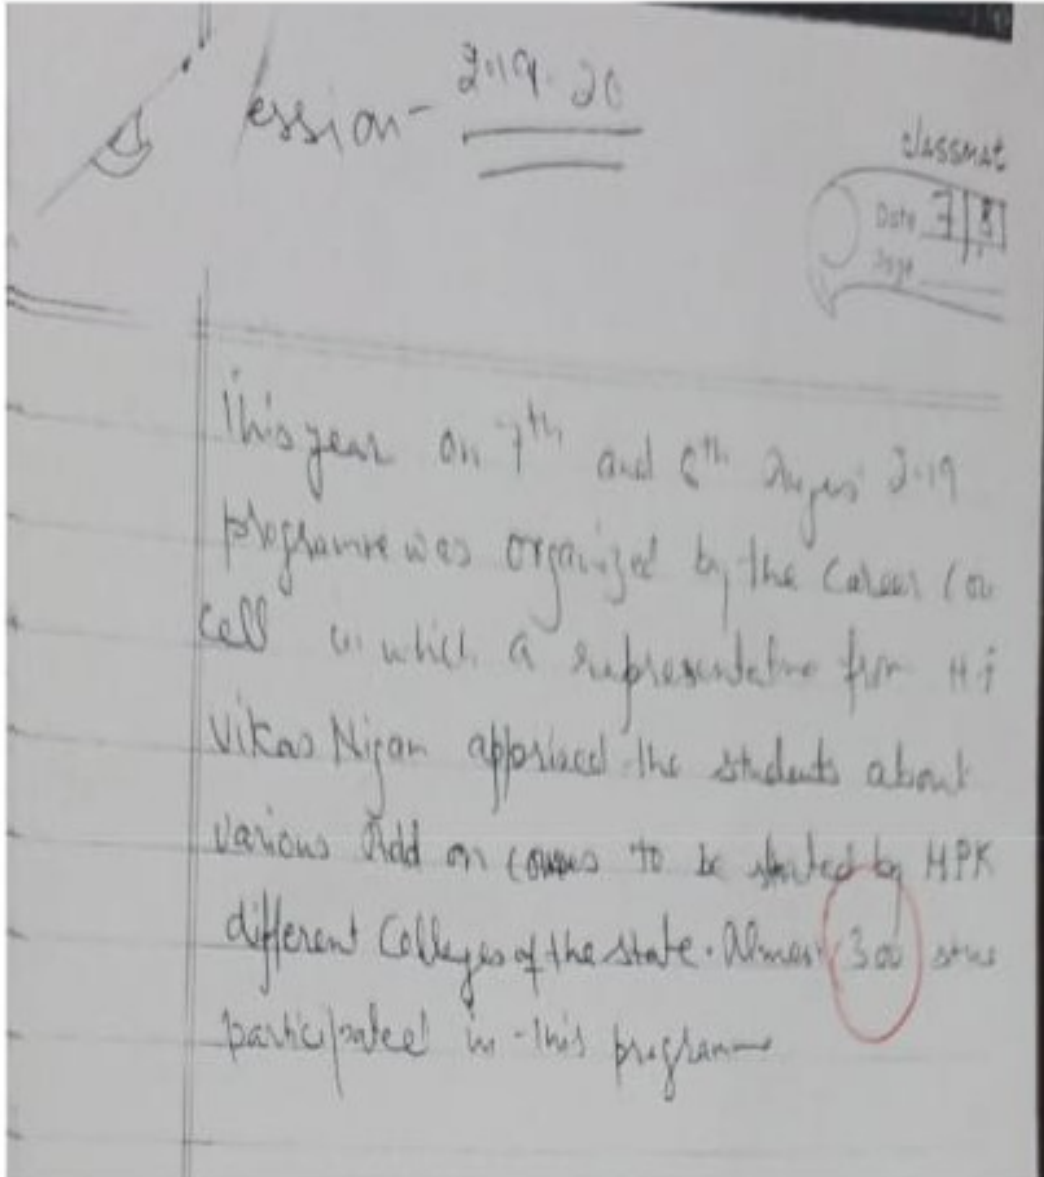 Session- 2019-20
classmat
Date 7/8
Page
This year on 7th and 8th August 2019
programme was organized by the Career Cou
Cell in which a representative from Hi
Vikas Nigam apprised the students about
various Add on courses to be started by HPK
different Colleges of the state. Almost 300 stu
participated in this programme